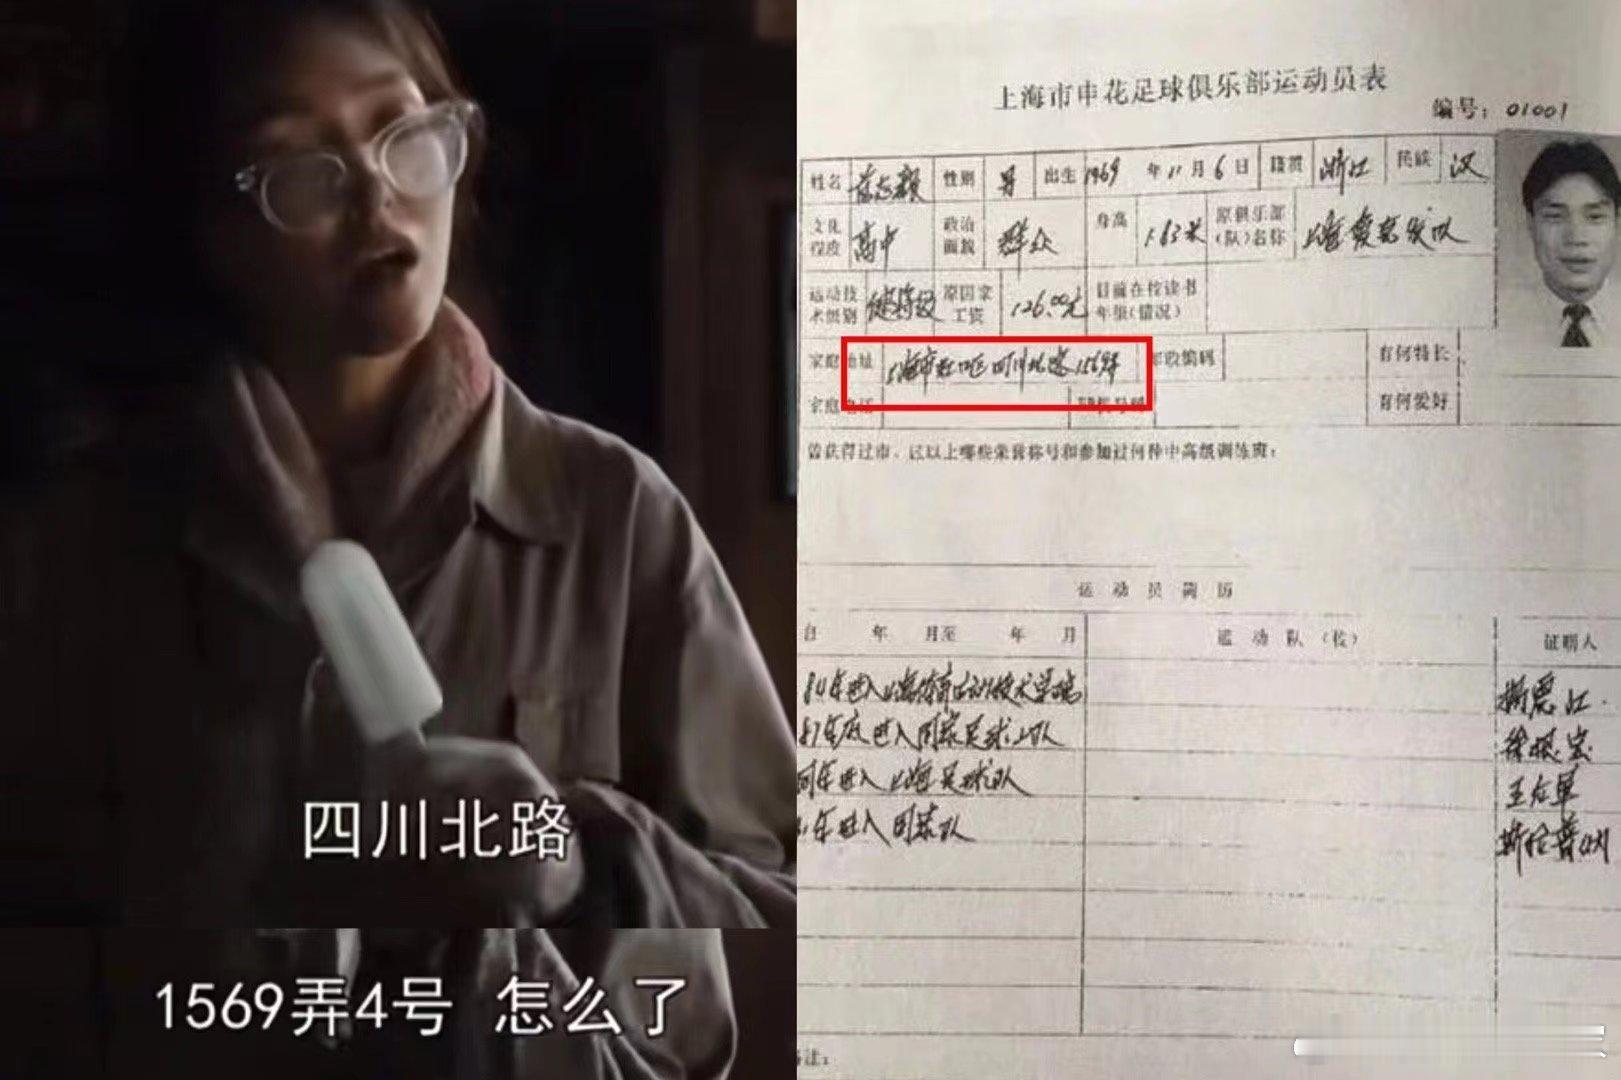 四川北路
1569弄4号 怎么了
上海市申花足球俱乐部运动员表
编号：01001
姓名 范志毅 性别 男 出生 1969 年 11 月 6 日 籍贯 浙江 民族 汉
文化程度 高中 政治面貌 群众 身高 1.83米 原俱乐部(队)名称 上海
运动技术级别 健将级 原国家工资 126.00元 目前在校读书年级(情况)
家庭地址 上海市虹口区四川北路1569弄 邮政编码 有何特长
家庭电话 有何爱好
曾获得过市、区以上哪些荣誉称号和参加过何种中高级训练班：
运动员简历
自 年 月至 年 月 运动队（校） 证明人
84年进入上海体育运动技术学院
87年底进入国家足球二队 徐根宝
同年进入上海足球队 王后军
年进入国家队
备注：